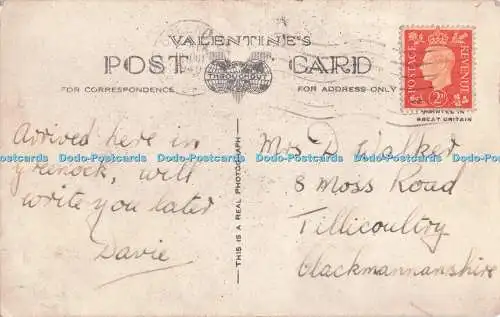 VALENTINE'S
POST CARD
THROUGHOUT
FOR CORRESPONDENCE
FOR ADDRESS ONLY
POSTAGE
REVENUE
2D
PRINTED IN
GREAT BRITAIN
THIS IS A REAL PHOTOGRAPH
Arrived here in
Greenock, will
write you later
Davie
Mrs D Walker
8 Moss Road
Tillicoultry
Clackmannanshire
Dodo-Postcards Dodo-Postcards Dodo-Postcards Dodo-Postcards Dodo-Postcards